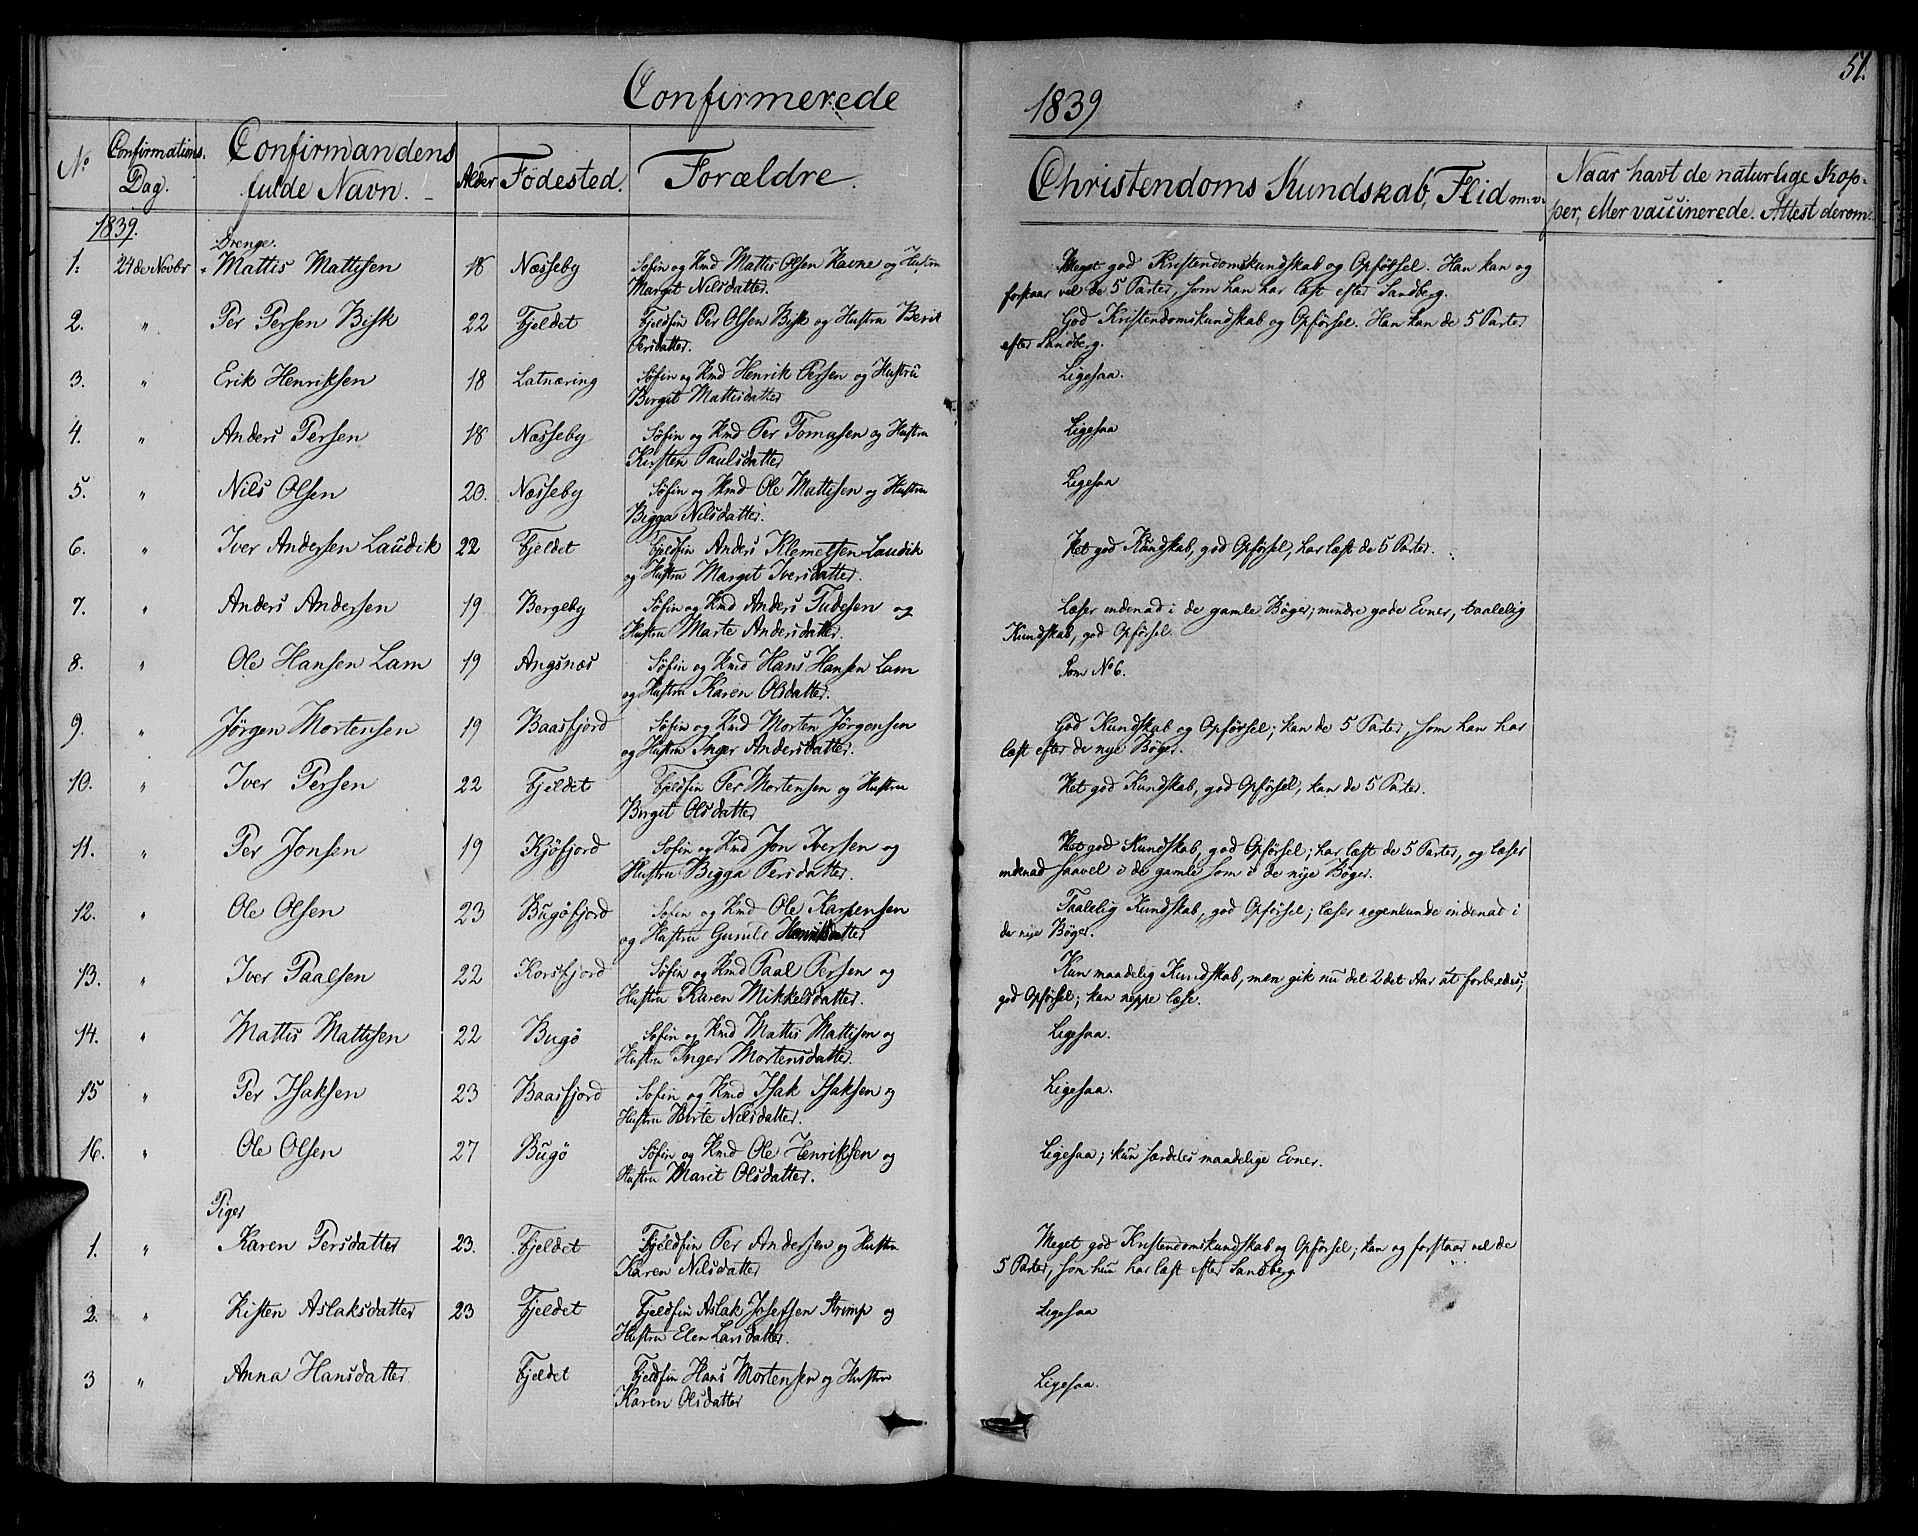 Confirmerede
1839
51.
No
Confirmations Dag.
Confirmandens fulde Navn.
Alder
Fødested.
Forældre.
Christendoms Kundskab, Flid m:v:
Naar havt de naturlige Kop-
per, eller vaccinerede. Attest derom.
1839.
Drenge.
1. 24de Novbr Mattis Mattisen 18 Næsseby Søfin og Kmd Mattis Olsen Ravne og Hustru
Margit Nilsdatter.
Meget god Kristendomskundskab og Opførsel. Han kan og
forstaar vel de 5 Parter, som han har læst efter Sandberg.
2. " Per Persen Bisk 22 Fjeldet Fjeldfin Per Olsen Bisk og Hustru Berit
Persdatter.
God Kristendomskundskab og Opførsel. Han kan de 5 Parter
efter Sandberg.
3. " Erik Henriksen 18 Latnæring Søfin og Kmd Henrik Persen og Hustru
Birgit Mattisdatter
Ligesaa.
4. " Anders Persen 18 Næsseby Søfin og Kmd Per Tomasen og Hustru
Kirsten Paulsdatter
Ligesaa
5. " Nils Olsen 20. Næsseby Søfin og Kmd Ole Mattisen og Hustru
Bigga Nilsdatter.
Ligesaa
6. " Iver Andersen Laudik 22 Fjeldet Fjeldfin Anders Klemetsen Laudik
og Hustru Margit Iversdatter.
Ret god Kundskab, god Opførsel, har læst de 5 Parter.
7. " Anders Andersen 19 Bergeby Søfin og Kmd Anders Tudesen og
Hustru Marte Andersdatter.
Læser indenad i de gamle Bøger; mindre gode Evner, taalelig
Kundskab, god Opførsel.
8. " Ole Hansen Lam 19 Angsnæs Søfin og Kmd Hans Hansen Lam
og Hustru Karen Olsdatter.
Som No 6.
9. " Jørgen Mortensen 19 Baasfjord Søfin og Kmd Morten Jørgensen
og Hustru Inger Andersdatter.
God Kundskab og Opførsel; kan de 5 Parter, som han har
læst efter de nye Bøger.
10. " Iver Persen 22 Fjeldet Fjeldfin Per Mortensen og Hustru
Birgit Olsdatter
Ret god Kundskab, god Opførsel, kan de 5 Parter.
11. " Per Jonsen 19 Kjøfjord Søfin og Kmd Jon Iversen og
Hustru Bigga Persdatter.
Ret god Kundskab, god Opførsel; har læst de 5 Parter, og læser
indenad saavel i de gamle som i de nye Bøger.
12. " Ole Olsen 23 Bugøfjord Søfin og Kmd Ole Karpensen
og Hustru Henriksdatter
Taalelig Kundskab, god Opførsel; læser nogenlunde indenad i
de nye Bøger.
13. " Iver Paalsen 22 Korsfjord Søfin og Kmd Paal Persen og
Hustru Karen Mikkelsdatter.
Kun maadelig Kundskab, men gik nu det 2det Aar at forberedes;
god Opførsel; kan neppe læse.
14. " Mattis Mattisen 22 Bugø Søfin og Kmd Mattis Mattisen og
Hustru Inger Mortensdatter.
Ligesaa.
15 " Per Isaksen 23 Baasfjord Søfin og Kmd Isak Isaksen og
Hustru Birte Nilsdatter.
Ligesaa.
16. " Ole Olsen 27 Bugø Søfin og Kmd Ole Henriksen og
Hustru Marit Olsdatter.
Ligesaa; kun særdeles maadelige Evner.
Piger
1. " Karen Persdatter 23. Fjeldet Fjeldfin Per Andersen og Hustru
Karen Nilsdatter
Meget god Kristendomskundskab og Opførsel; kan og forstaar vel de
5 Parter, som hun har læst efter Sandberg.
2. " Kisten Aslaksdatter 23 Fjeldet Fjeldfin Aslak Josefsen Strimp og
Hustru Elen Larsdatter.
Ligesaa
3 " Anna Hansdatter. Fjeldet Fjeldfin Hans Mortensen og Hustru
Karen Olsdatter
Ligesaa.